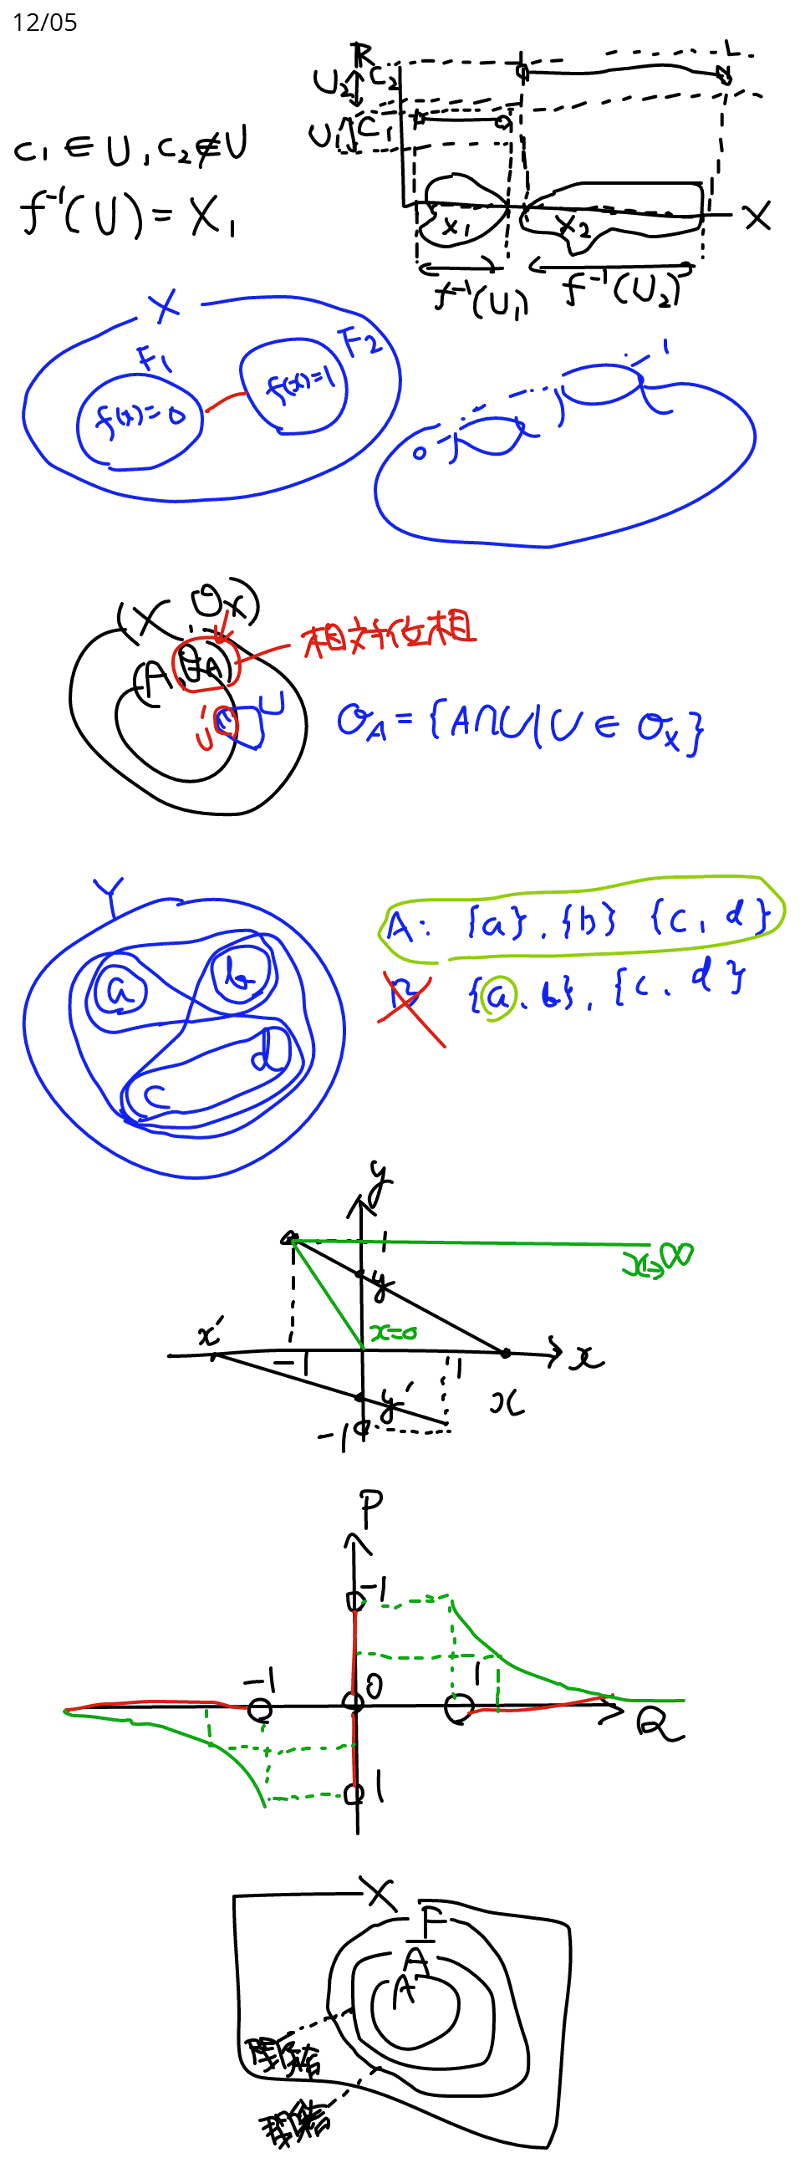 12/05
R
U₂ C₂
U₁ C₁
C₁ ∈ U, C₂ ∉ U
f⁻¹(U) = X₁
X₁ X₂ X
f⁻¹(U₁) f⁻¹(U₂)
X
F₁ F₂
f(x)=0 f(x)=1
0 1
(X, O_X)
(A, O_A) 相対位相
U' U
O_A = {A∩U | U ∈ O_X}
Y
a b
c d
A: {a}, {b} {c, d}
B {a, b}, {c, d}
y
1
x→∞
y
x=0
x' -1 1 x
y' x
-1
P
-1
-1 0 1
Q
1
X
F
A̅
A